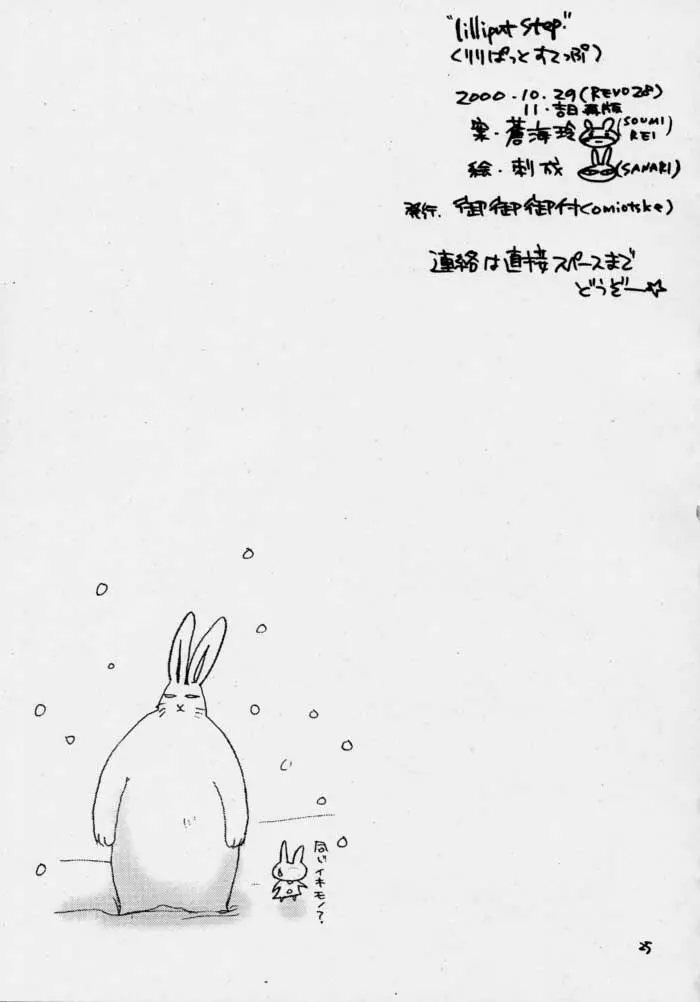 "lilliput step."
(りりぱっとすてっぷ)
2000.10.29(REVO28)
11.吉日再版
案・蒼海玲(SOUMI REI)
絵・刺成(SANARI)
発行.御御御付(omiotske)
連絡は直接スペースまで
どうぞー☆
同じイキモノ?
25